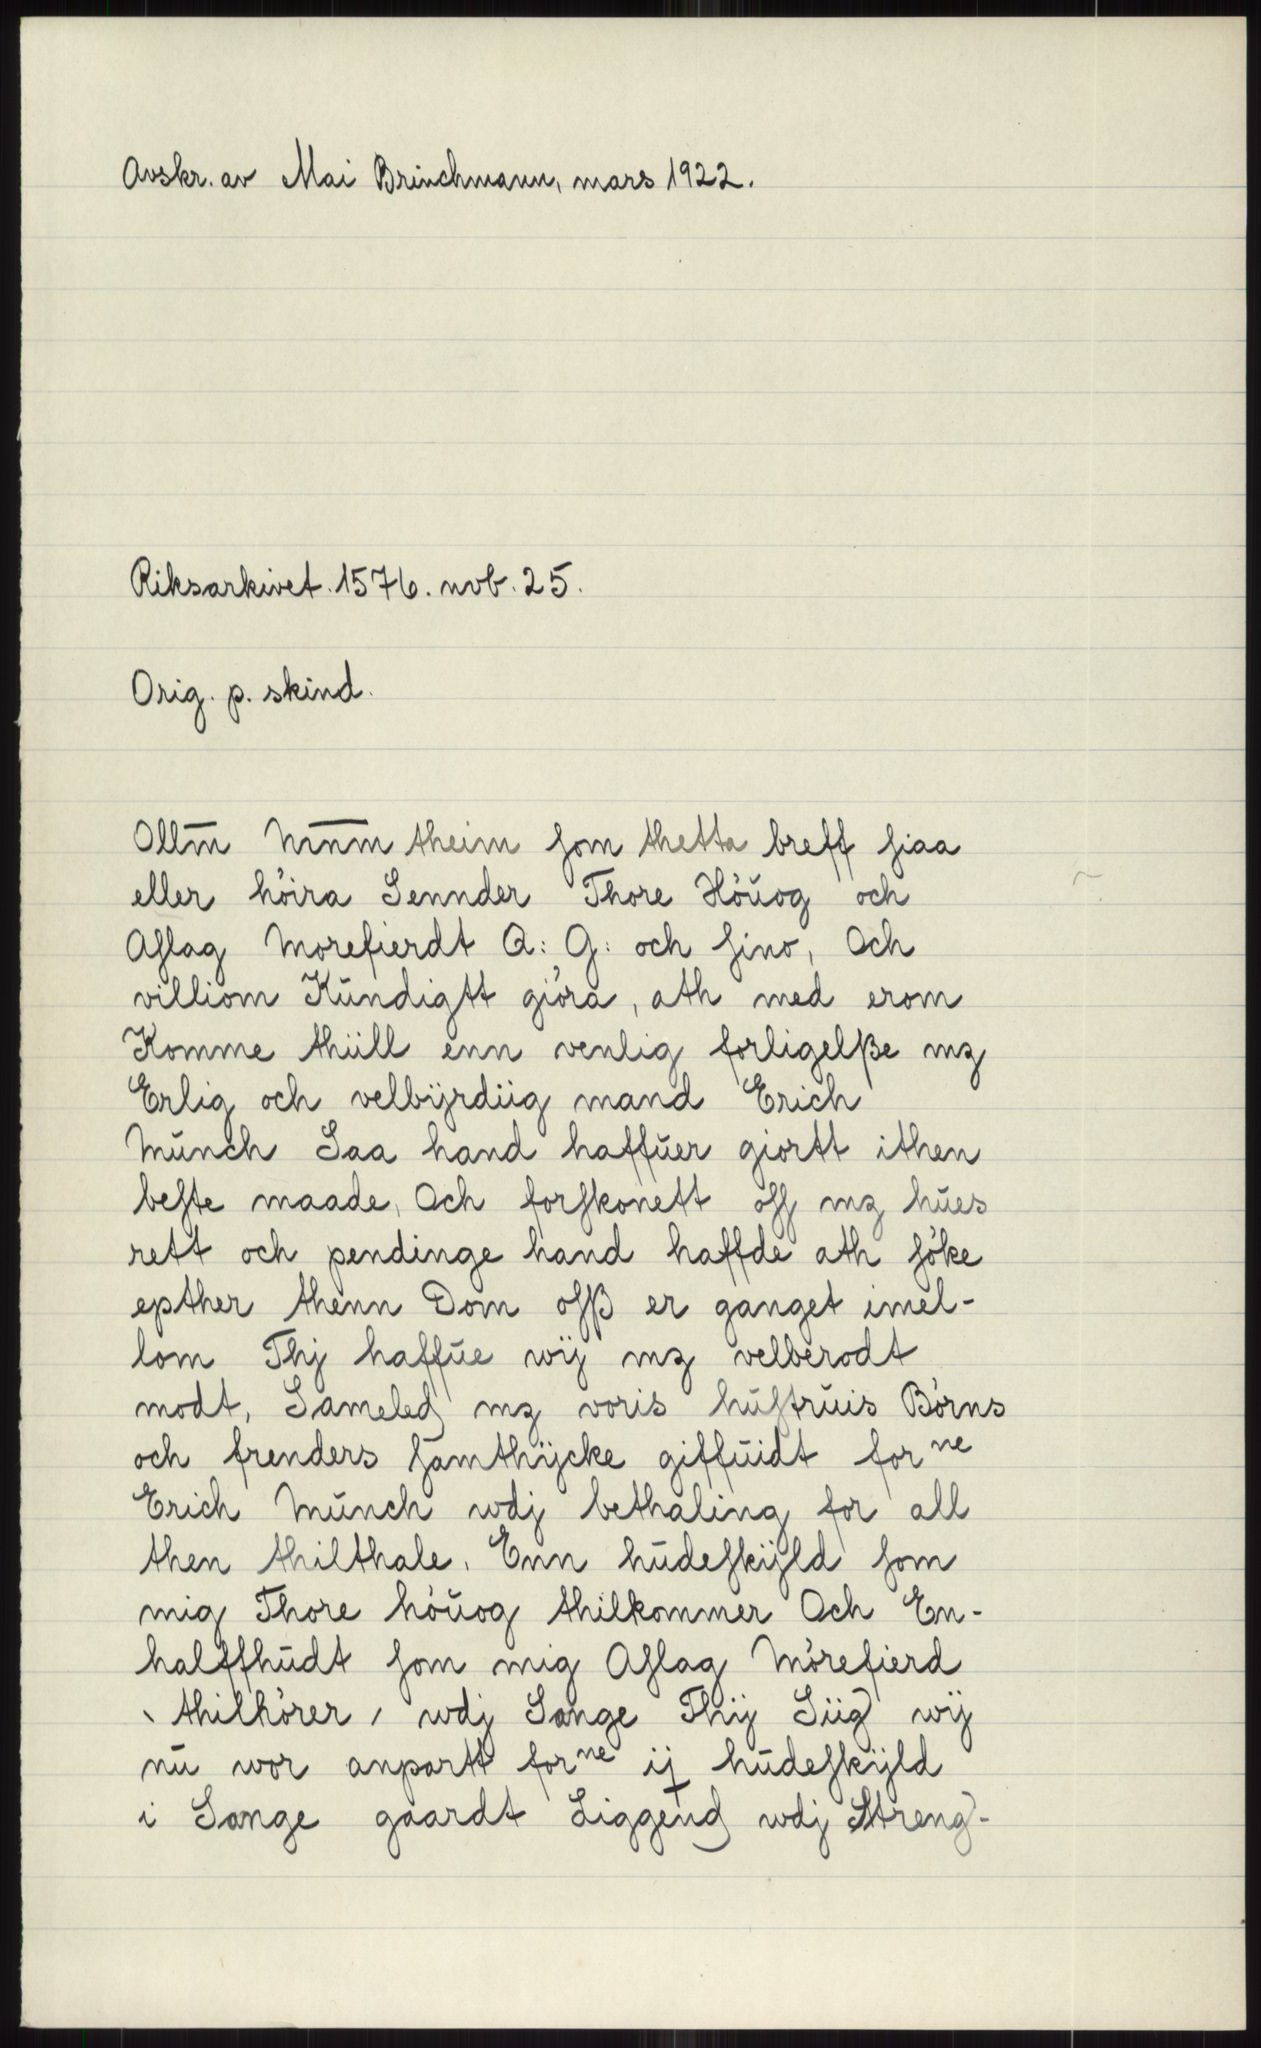 Avskr. av Mai Brinchmann, mars 1922.
Riksarkivet. 1576. nvb. 25.
Orig. p. skind.
Ollm̄ mn̄m theim som thetta breff siaa
eller höira Sennder Thore Höŭog och
Aslag Morefierdt Q: G: och sino, Och
villiom Kŭndigtt giöra, ath med erom
Komme thüll enn venlig forligelße mꝫ
Erlig och velbÿrdüg mand Erich
Mŭnch Saa hand haffŭer giortt ithen
beste maade, Och forskonett oss mꝫ hŭes
rett och pendinge hand haffde ath söke
epther thenn Dom osß er ganget imel-
lom Thj haffŭe wÿ mꝫ velberodt
modt, Sameled mꝫ voris hŭstrŭis Börns
och frenders samthÿcke giffŭidt forne
Erich Mŭnch wdj bethaling for all
then thilthale. Enn hŭdeskÿld som
mig Thore höŭog thilkommer Och En-
halffhŭdt som mig Aslag Mörefierd
thilhörer, wdj Songe Thÿ Süg wÿ
nŭ wor anpartt forne ij hŭdeskÿld
i Songe gaardt Liggend wdj Streng-